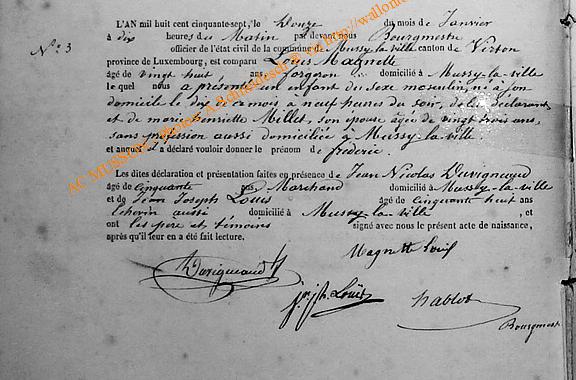 L'AN mil huit cent cinquante-sept, le Douze du mois de Janvier
N° 3
à dix heures du Matin par devant nous Bourgmestre
officier de l'état civil de la commune de Mussy-la-ville canton de Virton
province de Luxembourg, est comparu Louis Magnette
âgé de vingt huit ans forgeron domicilié à Mussy-la-ville
le quel nous a présenté un enfant du sexe masculin, né à son
domicile le dix ce mois à neuf heures du soir, de lui déclarant
et de marie henriette Millet, son épouse âgée de vingt trois ans,
sans profession aussi domiciliée à Mussy-la-ville
et auquel il a déclaré vouloir donner le prénom de frédéric.
Les dites déclaration et présentation faites en présence de Jean Nicolas Duvigneaud
âgé de cinquante Marchand domicilié à Mussy-la-ville
et de Jean Joseph Louis âgé de cinquante huit ans
échevin aussi domicilié à Mussy-la-ville, et
ont les père et témoins signé avec nous le présent acte de naissance,
après qu'il leur en a été fait lecture.
Magnette Louis
Duvigneaud
j.ph. Louis
Bourgmestre
AC MUSSON